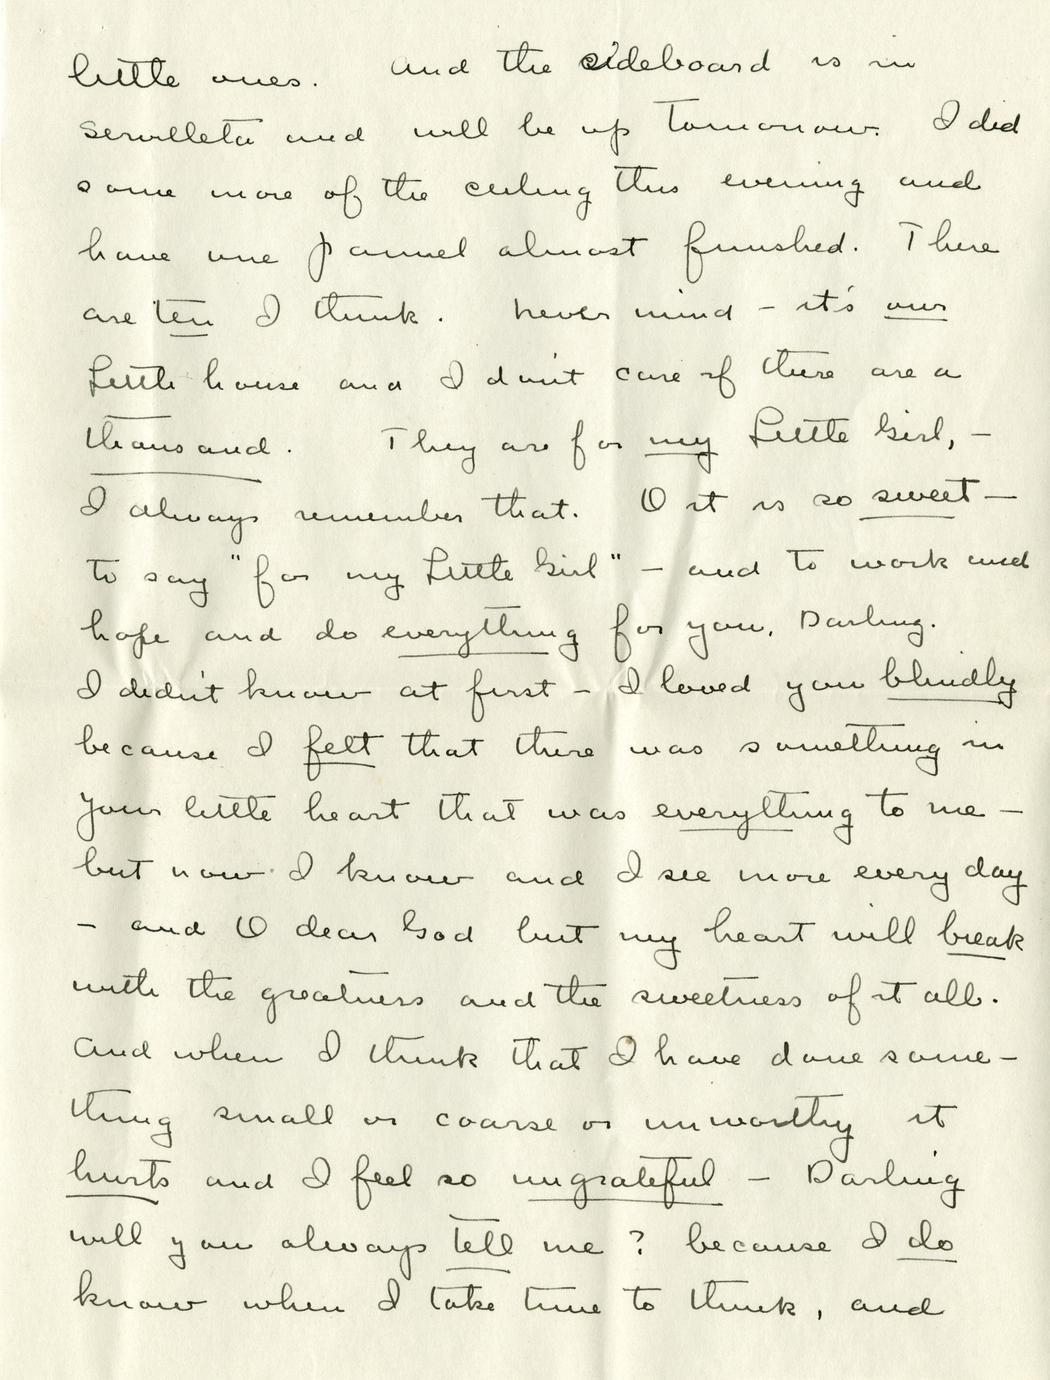 little ones. And the sideboard is in
Servilleta and will be up tomorrow. I did
some more of the ceiling this evening and
have one pannel almost finished. There
are ten I think. Never mind – it's our
Little house and I don't care if there are a
thousand. They are for my Little Girl, –
I always remember that. O it is so sweet –
to say "for my Little Girl" – and to work and
hope and do everything for you, Darling.
I didn't know at first – I loved you blindly
because I felt that there was something in
your little heart that was everything to me –
but now I know and I see more every day
– and O dear God but my heart will break
with the greatness and the sweetness of it all.
And when I think that I have done some-
thing small or coarse or unworthy it
hurts and I feel so ungrateful – Darling
will you always tell me? because I do
know when I take time to think, and